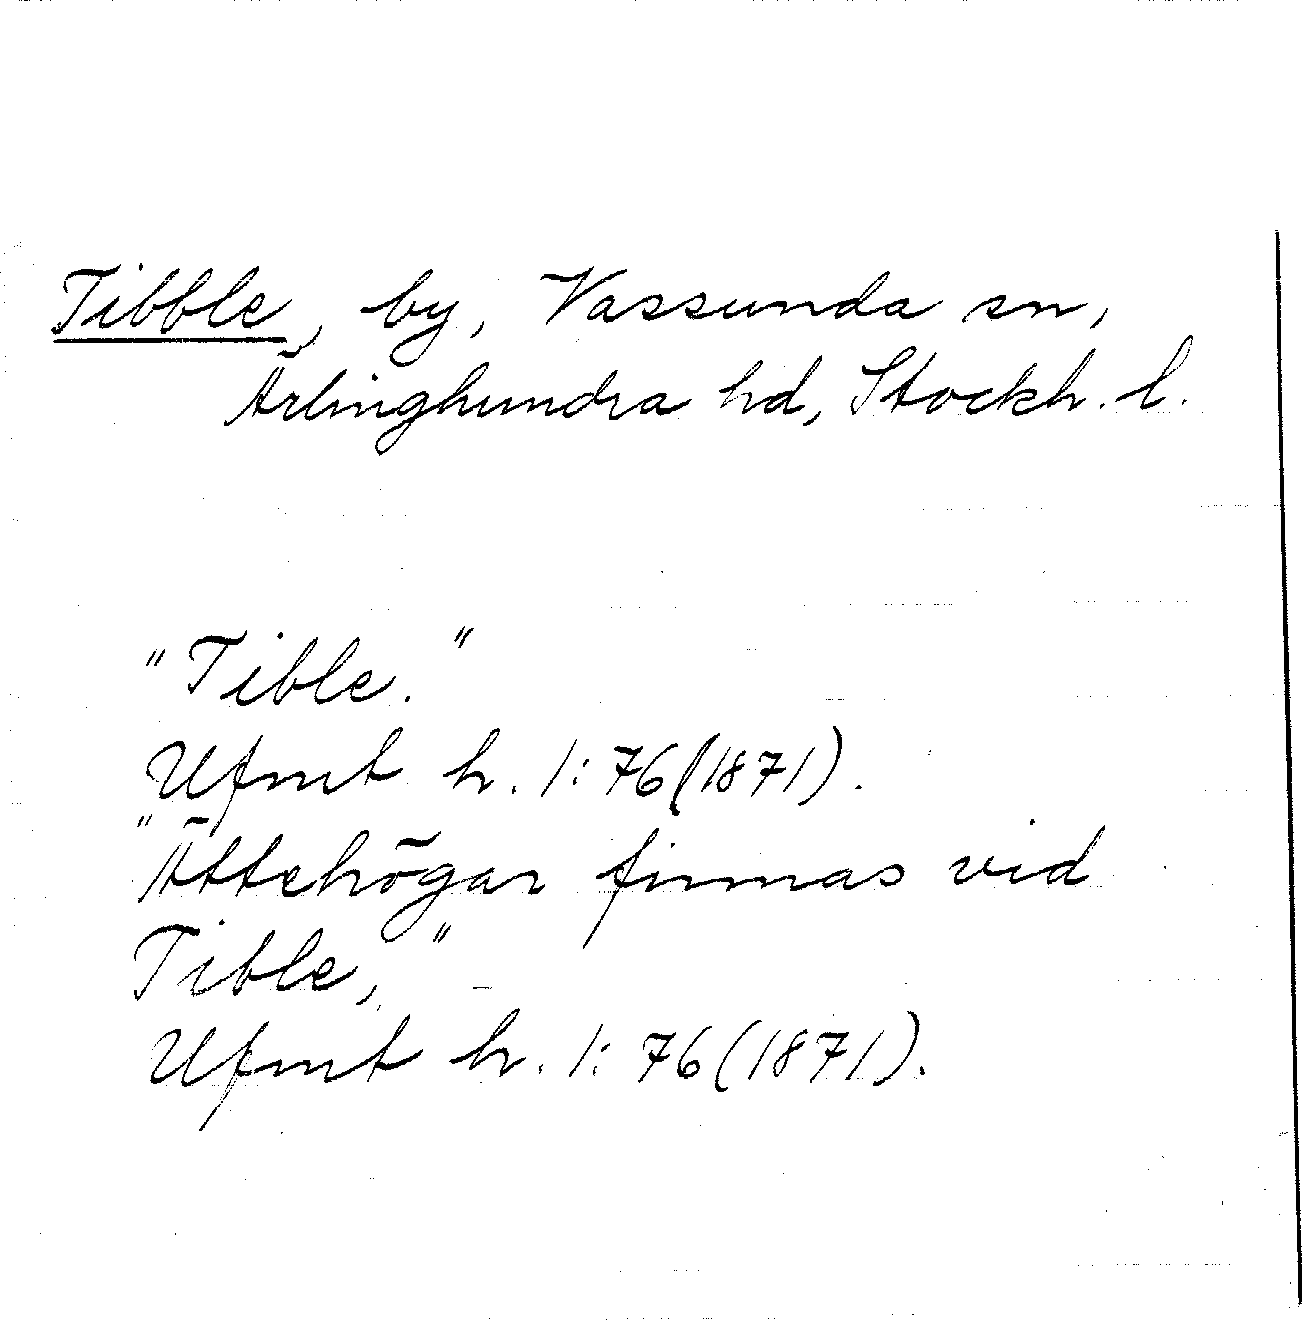 Tibble, by, Vassunda sn,
Ärlinghundra hd, Stockh. l.
"Tible."
Ufmt h. 1:76(1871).
"Ättehögar finnas vid
Tible," -
Ufmt h. 1:76(1871).